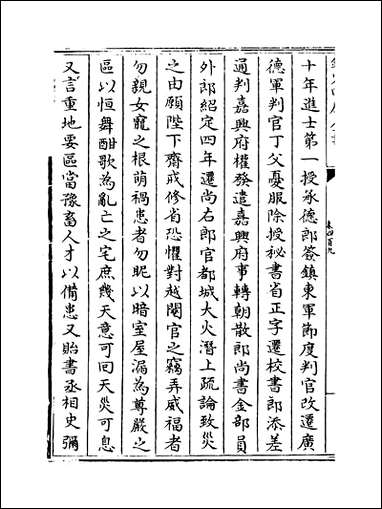 十年進士第一授承德郎簽鎮東軍節度判官改遷廣
德軍判官丁父憂服除授秘書省正字遷校書郎添差
通判嘉興府權發遣嘉興府事轉朝散郎尚書金部員
外郎紹定四年遷尚右郎官都城大火潛上疏論致災
之由願陛下齋戒修省恐懼對越閹官之竊弄威福者
勿親女寵之根萌禍患者勿昵以暗室屋漏為尊嚴之
區以恒舞酣歌為亂亡之宅庶幾天意可回天災可息
又言重地要區當豫畜人才以備患又貽書丞相史彌